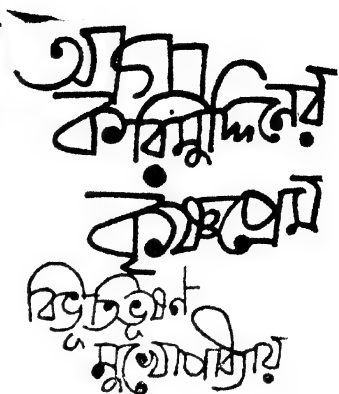 আগা
করিমুদ্দিনের
কৃষ্ণপ্রেম
বিভূতিভূষণ
মুখোপাধ্যায়